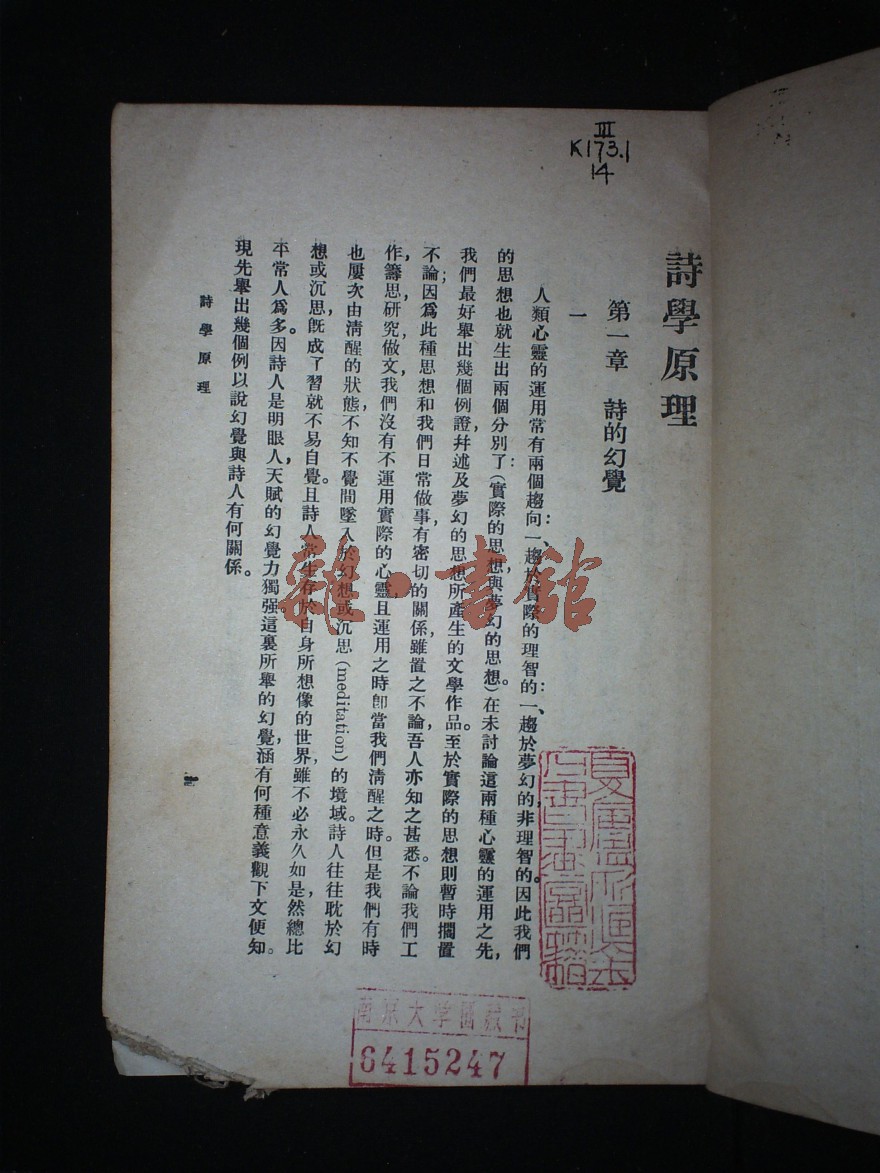 III
K173.1
14
詩學原理
第一章　詩的幻覺
一
人類心靈的運用常有兩個趨向：一、趨於實際的理智的；一、趨於夢幻的，非理智的。因此我們
的思想也就生出兩個分別了：（實際的思想，與夢幻的思想。）在未討論這兩種心靈的運用之先，
我們最好舉出幾個例證幷述及夢幻的思想所產生的文學作品。至於實際的思想則暫時擱置
不論；因爲此種思想和我們日常做事有密切的關係，雖置之不論，吾人亦知之甚悉。不論我們工
作，籌思，研究，做文，我們沒有不運用實際的心靈，且運用之時卽當我們淸醒之時。但是我們有時
也屢次由淸醒的狀態，不知不覺間墜入於幻想或沉思（meditation）的境域。詩人往往耽於幻
想或沉思，旣成了習，就不易自覺。且詩人常生存於自身所想像的世界，雖不必永久如是，然總比
平常人爲多。因詩人是明眼人，天賦的幻覺力獨强。這裏所舉的幻覺涵有何種意義，觀下文便知。
現先舉出幾個例以說幻覺與詩人有何關係。
詩學原理
一
雜·書館
南京大学图藏书
6415247